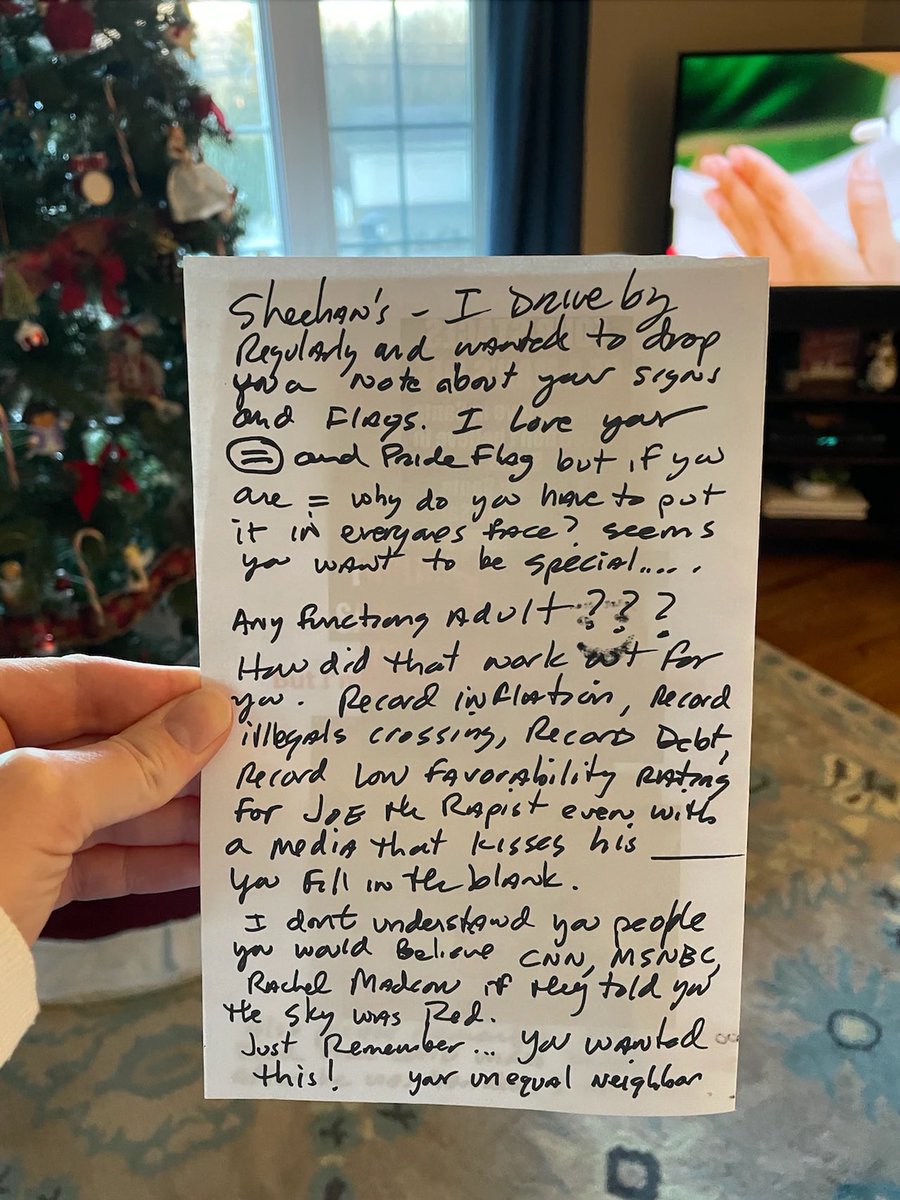 Sheehan's - I Drive by
Regularly and wanted to drop
you a note about your signs
and Flags. I love your
= and Pride Flag but if you
are = why do you have to put
it in everyones face? seems
you want to be special.....
Any functiong Adult ? ? ?
How did that work out for
you. Record inflation, Record
illegals crossing, Record Debt,
Record Low favorability Rating
for JOE the Rapist even with
a media that kisses his ______
you fill in the blank.
I dont understand you people
you would Believe CNN, MSNBC,
Rachel Madcow if they told you
the sky was Red.
Just Remember... you wanted
this! your unequal neighbor